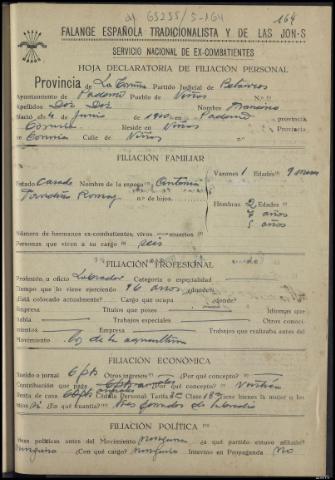 164
FALANGE ESPAÑOLA TRADICIONALISTA Y DE LAS JON-S
SERVICIO NACIONAL DE EX-COMBATIENTES
HOJA DECLARATORIA DE FILIACIÓN PERSONAL
Provincia de La Coruña Partido Judicial de Betanzos
Ayuntamiento de Paderne Pueblo de Viños N.º
Apellidos Dos Dos Nombre Francisco
Nació el 4 de Junio de 1900 en Paderne provincia
Coruña Reside en Viños provincia
Coruña Calle de Viños N.º
FILIACIÓN FAMILIAR
Estado Casado Nombre de la esposa Antonia Varones 1 Edades 9 meses
n.º de hijos Hembras 2 Edades
7 años
5 años
Número de hermanos ex-combatientes, vivos muertos
Personas que viven a su cargo seis
FILIACIÓN PROFESIONAL
Profesión u oficio Labrador Categoría o especialidad
Tiempo que lo viene ejerciendo 16 años ¿dónde?
¿Está colocado actualmente? Cargo que ocupa ¿dónde?
Empresa Títulos que posee Idiomas que
habla Trabajos especiales Otros conoci-
mientos Empresa Trabajos que realizaba antes del
Movimiento los de la agricultura
FILIACIÓN ECONÓMICA
Sueldo o jornal 6 pts Otros ingresos ¿Por qué concepto?
Contribución que paga ¿Por qué concepto?
Renta de casa Cédula Personal Tarifa 3ª Clase Tiene bienes la mujer o los
¿En qué cuantía?
FILIACIÓN POLÍTICA
Ideas políticas antes del Movimiento ninguna ¿a qué partido estuvo afiliado?
ninguno ¿Con qué cargo? ninguno Intervino en Propaganda No